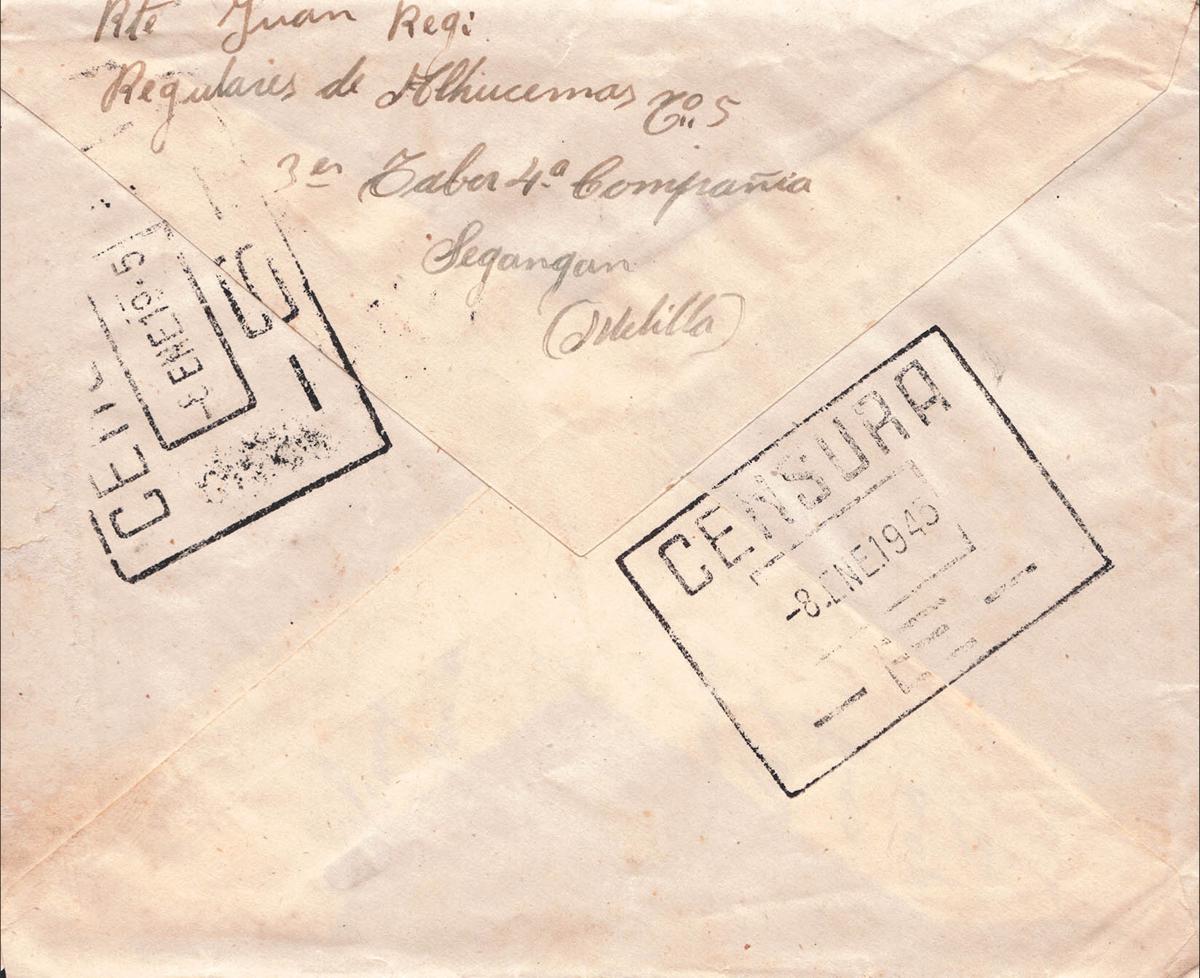 Rte Juan Regi
Regulares de Alhucemas no. 5
3er Tabor 4.ª Compañia
Segangan
(Melilla)
CENSURA
-8.ENE1945
CEN
ENE19 5